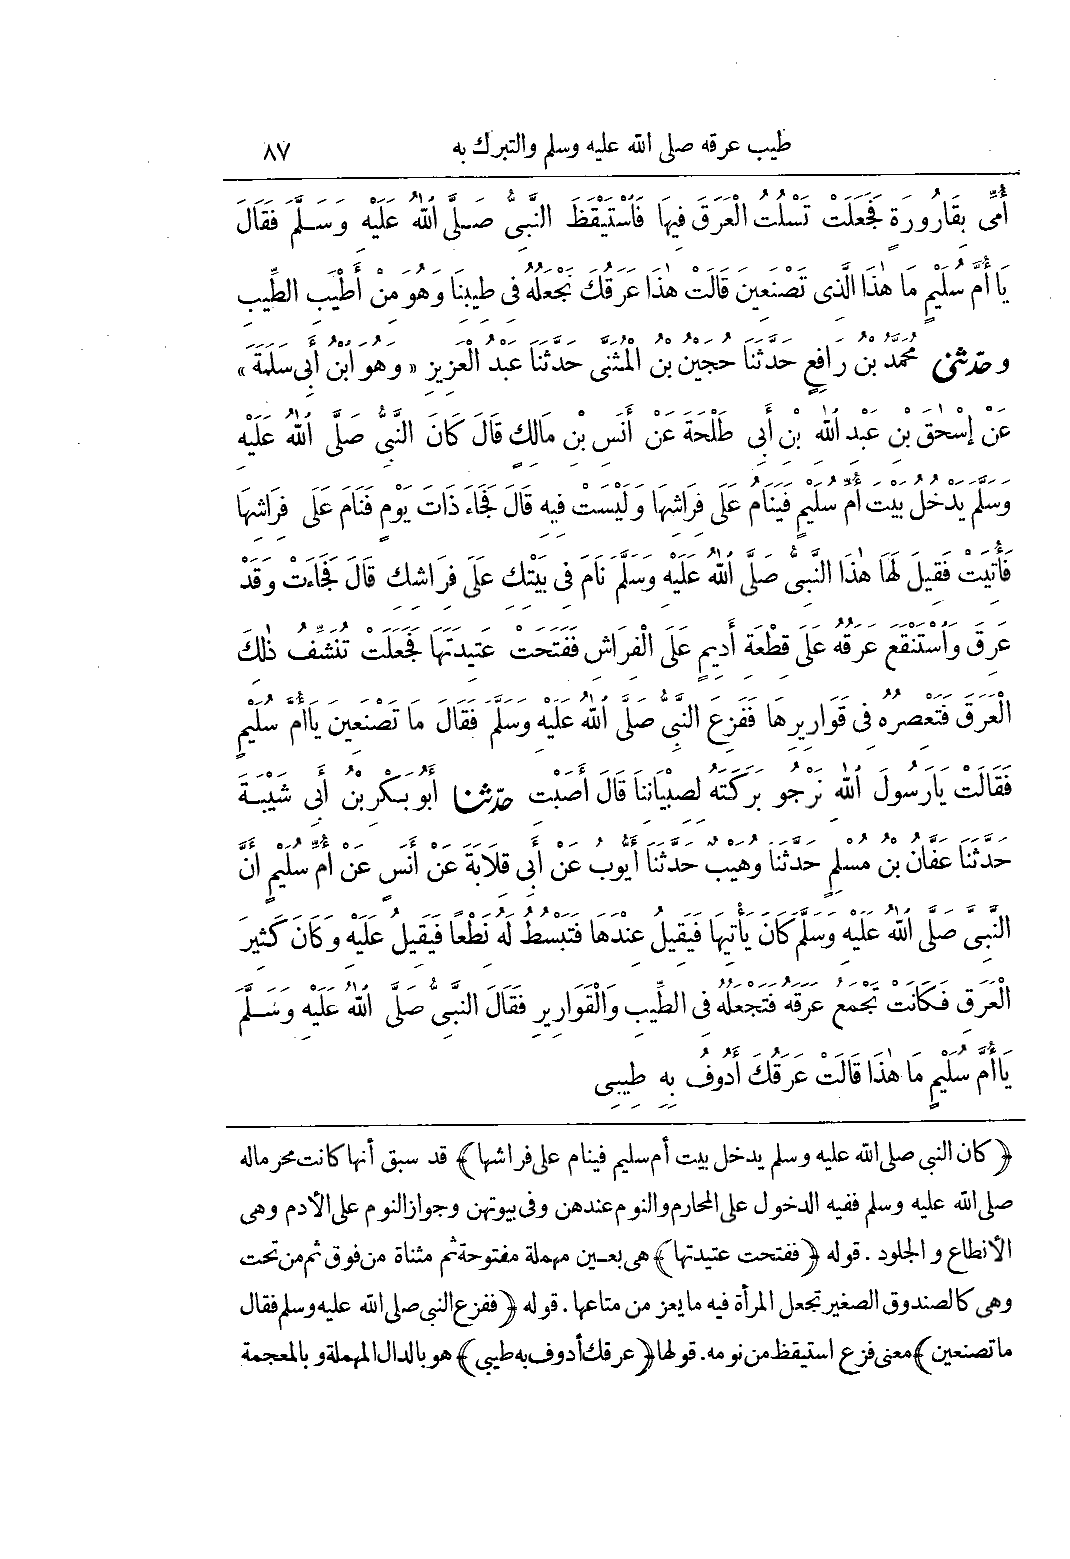 طيب عرقه صلى الله عليه وسلم والتبرك به ٨٧
أُمِّى بِقَارُورَةٍ فَجَعَلَتْ تَسْلُتُ الْعَرَقَ فِيهَا فَاسْتَيْقَظَ النَّبِىُّ صَلَّى اللهُ عَلَيْهِ وَسَلَّمَ فَقَالَ
يَا أُمَّ سُلَيْمٍ مَا هٰذَا الَّذِى تَصْنَعِينَ قَالَتْ هٰذَا عَرَقُكَ نَجْعَلُهُ فِى طِيبِنَا وَهُوَ مِنْ أَطْيَبِ الطِّيبِ
و حَدَّثَنِى مُحَمَّدُ بْنُ رَافِعٍ حَدَّثَنَا حُجَيْنُ بْنُ الْمُثَنَّى حَدَّثَنَا عَبْدُ الْعَزِيزِ « وَهُوَ ابْنُ أَبِى سَلَمَةَ »
عَنْ إِسْحٰقَ بْنِ عَبْدِ اللهِ بْنِ أَبِى طَلْحَةَ عَنْ أَنَسِ بْنِ مَالِكٍ قَالَ كَانَ النَّبِىُّ صَلَّى اللهُ عَلَيْهِ
وَسَلَّمَ يَدْخُلُ بَيْتَ أُمِّ سُلَيْمٍ فَيَنَامُ عَلَى فِرَاشِهَا وَلَيْسَتْ فِيهِ قَالَ فَجَاءَ ذَاتَ يَوْمٍ فَنَامَ عَلَى فِرَاشِهَا
فَأُتِيَتْ فَقِيلَ لَهَا هٰذَا النَّبِىُّ صَلَّى اللهُ عَلَيْهِ وَسَلَّمَ نَامَ فِى بَيْتِكِ عَلَى فِرَاشِكِ قَالَ فَجَاءَتْ وَقَدْ
عَرِقَ وَاسْتَنْقَعَ عَرَقُهُ عَلَى قِطْعَةِ أَدِيمٍ عَلَى الْفِرَاشِ فَفَتَحَتْ عَتِيدَتَهَا فَجَعَلَتْ تُنَشِّفُ ذٰلِكَ
الْعَرَقَ فَتَعْصِرُهُ فِى قَوَارِيرِهَا فَفَزِعَ النَّبِىُّ صَلَّى اللهُ عَلَيْهِ وَسَلَّمَ فَقَالَ مَا تَصْنَعِينَ يَا أُمَّ سُلَيْمٍ
فَقَالَتْ يَارَسُولَ اللهِ نَرْجُو بَرَكَتَهُ لِصِبْيَانِنَا قَالَ أَصَبْتِ حَدَّثَنَا أَبُو بَكْرِ بْنُ أَبِى شَيْبَةَ
حَدَّثَنَا عَفَّانُ بْنُ مُسْلِمٍ حَدَّثَنَا وُهَيْبٌ حَدَّثَنَا أَيُّوبُ عَنْ أَبِى قِلَابَةَ عَنْ أَنَسٍ عَنْ أُمِّ سُلَيْمٍ أَنَّ
النَّبِىَّ صَلَّى اللهُ عَلَيْهِ وَسَلَّمَ كَانَ يَأْتِيهَا فَيَقِيلُ عِنْدَهَا فَتَبْسُطُ لَهُ نَطْعًا فَيَقِيلُ عَلَيْهِ وَكَانَ كَثِيرَ
الْعَرَقِ فَكَانَتْ تَجْمَعُ عَرَقَهُ فَتَجْعَلُهُ فِى الطِّيبِ وَالْقَوَارِيرِ فَقَالَ النَّبِىُّ صَلَّى اللهُ عَلَيْهِ وَسَلَّمَ
يَا أُمَّ سُلَيْمٍ مَا هٰذَا قَالَتْ عَرَقُكَ أَدُوفُ بِهِ طِيبِى
﴿ كان النبى صلى الله عليه وسلم يدخل بيت أم سليم فينام على فراشها ﴾ قد سبق أنها كانت محرما له
صلى الله عليه وسلم ففيه الدخول على المحارم والنوم عندهن وفى بيوتهن وجواز النوم على الأدم وهى
الأنطاع و الجلود . قوله ﴿ ففتحت عتيدتها ﴾ هى بعين مهملة مفتوحة ثم مثناة من فوق ثم من تحت
وهى كالصندوق الصغير تجعل المرأة فيه ما يعز من متاعها . قوله ﴿ ففزع النبى صلى الله عليه وسلم فقال
ما تصنعين ﴾ معنى فزع استيقظ من نومه . قولها ﴿ عرقك أدوف به طيبى ﴾ هو بالدال المهملة و بالمعجمة